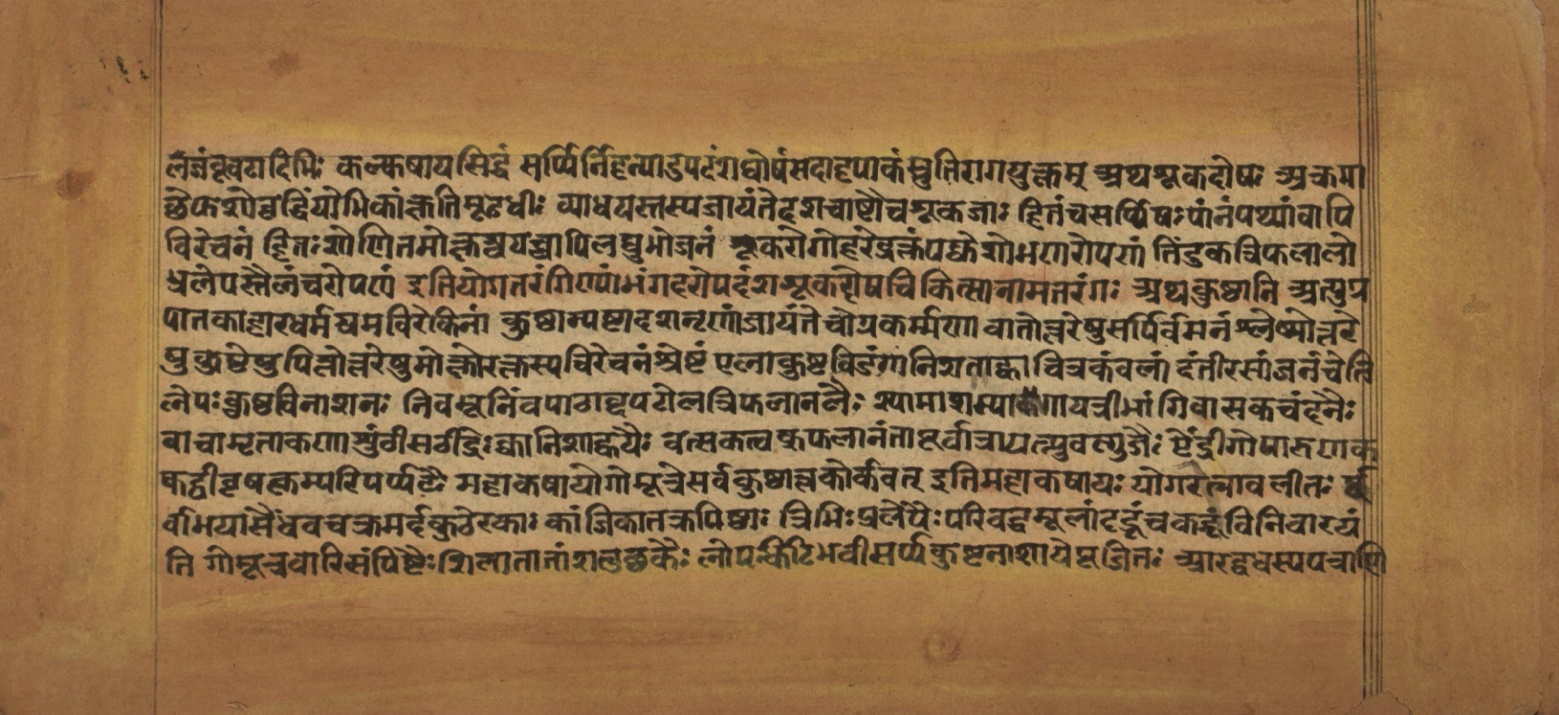 लजंवूवटादिभिः कल्कषायसिद्धं सर्प्पिर्निहन्याडपदंशघोषंसदाहपाकंस्रुतिरागयुक्तम् अथशूकदोषः अक्रमा
छेफशोवृद्धिंयोभिकांक्षतिमूढधीः व्याधयस्तस्यजायंतेदशचाष्टौचशूकजाः हितंचसर्प्पिषःपांनंपथ्यांवापि
विरेचनं हितःशोणितमोक्षश्चयच्चापिलघुभोजनं शूकरोगोहरेद्रक्तंपक्षेशोभणरोपणं तिंडुकत्रिफलालो
ध्रलेपस्तैलंचरोपणं इतियोगतरंगिण्यांभंगदरोपदंशशूकरोषचिकित्सानामतरंगः अथकुष्ठानि अत्युग्र
पातकाहारधर्मश्रमविरेकिनां कुष्ठान्यष्टादशनृणांजायंतेचोग्रकर्म्मणा वातोत्तरेषुसर्पिर्वमनंश्लेष्मोत्तरे
षुकुष्टेषुपित्तोत्तरेषुमोक्षोरक्तस्यविरेचनंश्रेष्टं एलाकुष्टविडंगानिशताह्वाचित्रकंवलां दंतीरसांजनंचेति
लेपःकुष्ठविनाशनः निवमूर्निंवपाठावृपटोलत्रिफलानलैः श्यामाशम्पाकगायत्रीमांगिवासकचंदनैः
वाचामृताकणाशुंठीसठीद्रिःह्वानिशाद्वयैः वत्सकत्वक्रुफलानंतादूर्वात्रायत्प्युवल्गुजैः ऐंद्रीगोपारुणाक
फट्वीवृषत्कम्परिपर्प्पटैः महाकषायोगोमूत्रेसर्वकुष्ठान्नकोर्कवत् इतिमहाकषायः योगरत्नावलीतः
र्वाभयासैंधवचक्रमर्दकुठेरकाः कांजिकातक्रपिष्ठाः त्रिभिःप्रलेपैःपरिवद्धमूलांदद्रूंचकद्रूंविनिवारयं
ति गोमूत्रवारिसंपिष्टैःशिलातातांशलछकैः लोपत्किटिभवीसर्प्पकुष्टनाशायेपूजितः आरद्वधस्यपत्राणि